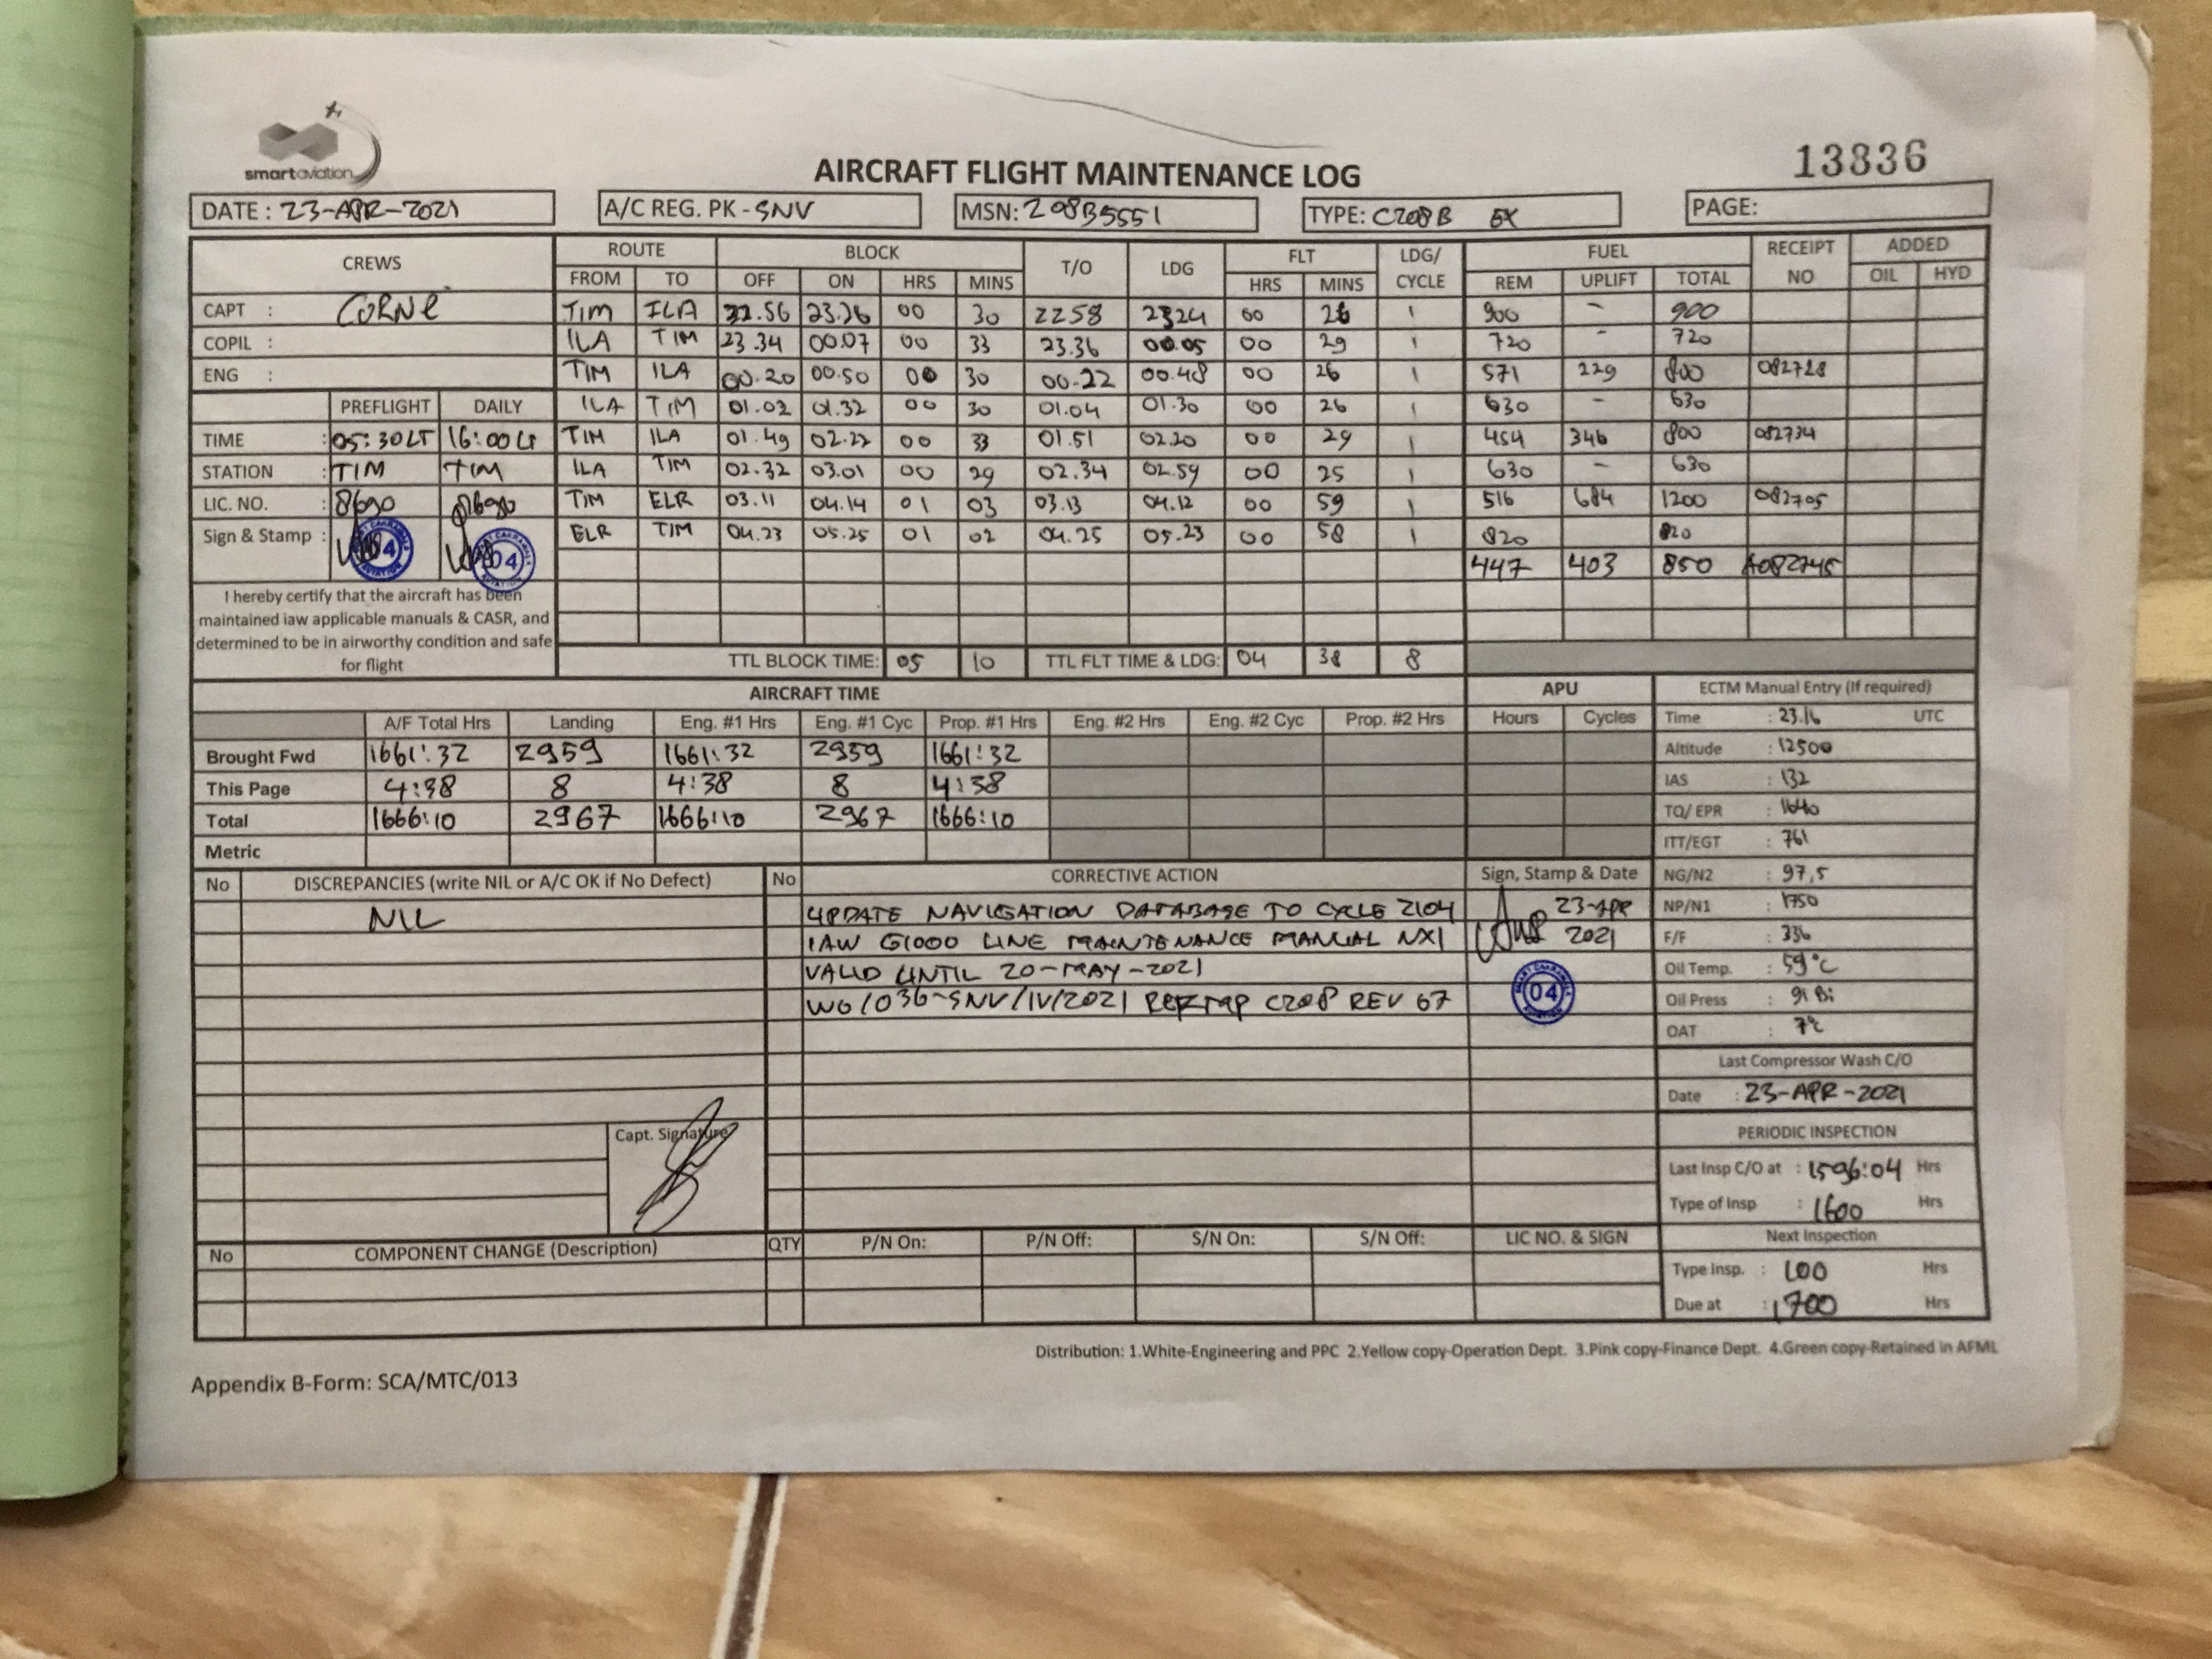 smartaviation
AIRCRAFT FLIGHT MAINTENANCE LOG
13836
DATE : 23-APR-2021 A/C REG. PK - SNV MSN: 208B5551 TYPE: C208B EX PAGE:
CREWS ROUTE BLOCK T/O LDG FLT LDG/ CYCLE FUEL RECEIPT NO ADDED
FROM TO OFF ON HRS MINS HRS MINS REM UPLIFT TOTAL OIL HYD
CAPT : CORNE TIM ILA 22.56 23.26 00 30 2258 2324 00 26 1 900 - 900
COPIL : ILA TIM 23.34 00.07 00 33 23.36 00.05 00 29 1 720 - 720
ENG : TIM ILA 00.20 00.50 00 30 00.22 00.48 00 26 1 571 229 800 082728
PREFLIGHT DAILY ILA TIM 01.02 01.32 00 30 01.04 01.30 00 26 1 630 - 630
TIME : 05:30LT 16:00LT TIM ILA 01.49 02.22 00 33 01.51 02.20 00 29 1 454 346 800 082734
STATION : TIM TIM ILA TIM 02.32 03.01 00 29 02.34 02.59 00 25 1 630 - 630
LIC. NO. : 8690 8690 TIM ELR 03.11 04.14 01 03 03.13 04.12 00 59 1 516 684 1200 082705
Sign & Stamp : 04 04 ELR TIM 04.23 05.25 01 02 04.25 05.23 00 58 1 820 820
447 403 850 A082745
I hereby certify that the aircraft has been
maintained iaw applicable manuals & CASR, and
determined to be in airworthy condition and safe
for flight
TTL BLOCK TIME: 05 10 TTL FLT TIME & LDG: 04 38 8
AIRCRAFT TIME APU ECTM Manual Entry (If required)
A/F Total Hrs Landing Eng. #1 Hrs Eng. #1 Cyc Prop. #1 Hrs Eng. #2 Hrs Eng. #2 Cyc Prop. #2 Hrs Hours Cycles Time : 23.16 UTC
Brought Fwd 1661:32 2959 1661:32 2959 1661:32 Altitude : 12500
This Page 4:38 8 4:38 8 4:38 IAS : 132
Total 1666:10 2967 1666:10 2967 1666:10 TQ/ EPR : 1640
Metric ITT/EGT : 761
No DISCREPANCIES (write NIL or A/C OK if No Defect) No CORRECTIVE ACTION Sign, Stamp & Date NG/N2 : 97,5
NIL UPDATE NAVIGATION DATABASE TO CYCLE 2104 23-APR NP/N1 : 1750
IAW G1000 LINE MAINTENANCE MANUAL NXI 2021 F/F : 336
VALID UNTIL 20-MAY-2021 Oil Temp. : 59°C
WO/036-SNV/IV/2021 REF MP C208 REV 67 04 Oil Press : 91
OAT : 7°C
Last Compressor Wash C/O
Date : 23-APR-2021
Capt. Signature
PERIODIC INSPECTION
Last Insp C/O at : 1596:04 Hrs
Type of Insp : 1600 Hrs
No COMPONENT CHANGE (Description) QTY P/N On: P/N Off: S/N On: S/N Off: LIC NO. & SIGN Next Inspection
Type Insp. : 100 Hrs
Due at : 1700 Hrs
Distribution: 1.White-Engineering and PPC 2.Yellow copy-Operation Dept. 3.Pink copy-Finance Dept. 4.Green copy-Retained in AFML
Appendix B-Form: SCA/MTC/013